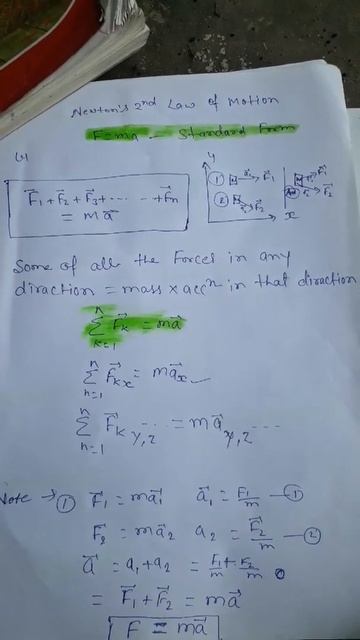 Newton's 2nd Law of Motion
F=ma — Standard Form
F⃗1 + F⃗2 + F⃗3 + ... ... + F⃗n
= m a⃗
y
① M F⃗1
② M F⃗2
x
Some of all the Forces in any
direction = mass × accⁿ in that direction
n ∑ k=1 F⃗k = ma⃗
n ∑ n=1 F⃗kx = ma⃗x
n ∑ n=1 F⃗k y,z ... = m a⃗ y,z ...
Note → ① F⃗1 = ma⃗1 a⃗1 = F1/m — ①
F⃗2 = ma⃗2 a2 = F⃗2/m — ②
a⃗ = a1 + a2 = F1/m + F2/m
= F⃗1 + F⃗2 = ma⃗
F = ma⃗